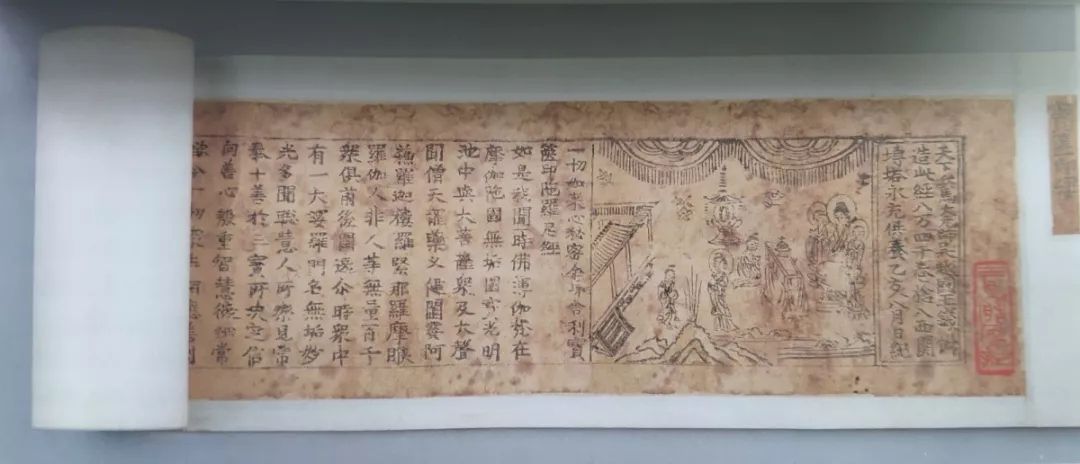 天下兵馬大元帥吳越國王錢俶
造此經八万四千卷捨入西關
塼塔永充供養乙亥八月日紀
一切如來心秘密全身舍利寶
篋印陁羅尼經
如是我聞一時佛薄伽梵在
摩伽陁國無垢園寶光明
池中與大菩薩衆及大聲
聞僧天龍藥叉健闥婆阿
蘇羅迦樓羅緊那羅摩睺
羅伽人非人等無量百千
衆俱前後圍遶尒時衆中
有一大婆羅門名無垢妙
光多聞聰慧人所樂見常
奉十善於三寶所决定信
向善心殷重智慧微細常
一切衆生相應善利